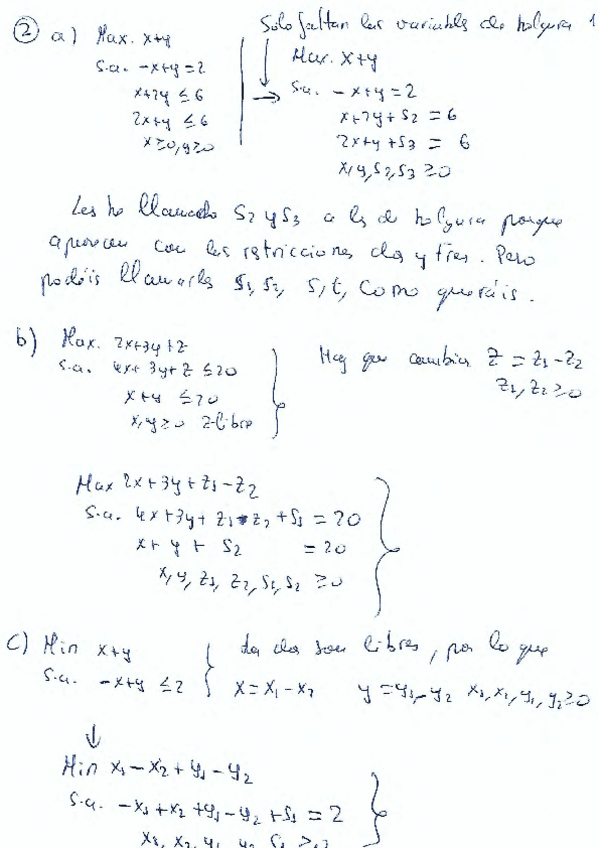 ② a) Max. x+y
s.a. -x+y = 2
x+2y ≤ 6
2x+y ≤ 6
x≥0, y≥0
Solo faltan las variables de holgura 1
Max. x+y
s.a. -x+y = 2
x+2y+s2 = 6
2x+y+s3 = 6
x,y,s2,s3 ≥0
Les he llamado s2 y s3 a las de holgura porque
aparecen con las restricciones dos y tres. Pero
podéis llamarlas s1, s2, s, t, como queráis.
b) Max. 2x+3y+z
s.a. 4x+3y+z ≤20
x+y ≤20
x,y≥0 z libre
Hay que cambiar z = z1-z2
z1, z2 ≥0
Max 2x+3y+z1-z2
s.a. 4x+3y+z1-z2+s1 = 20
x+y+s2 = 20
x, y, z1, z2, s1, s2 ≥0
c) Min x+y
s.a. -x+y ≤ 2
Las dos son libres, por lo que
x = x1-x2 y = y1-y2 x1, x2, y1, y2≥0
↓
Min x1-x2+y1-y2
s.a. -x1+x2+y1-y2+s1 = 2
x1, x2, y1, y2, s1 ≥0